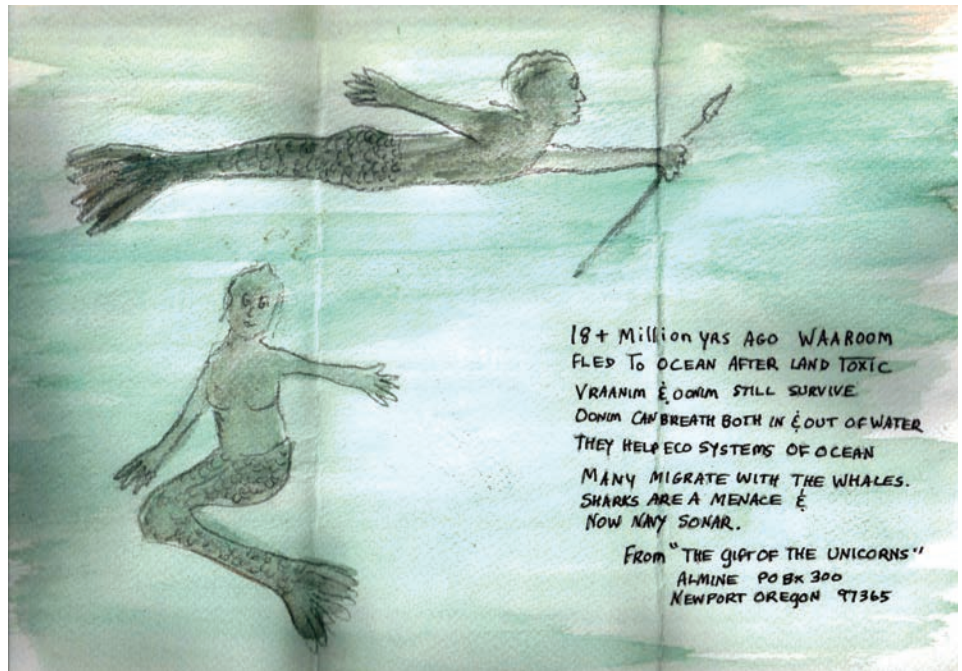 18+ Million yrs AGO WAAROOM
FLED TO OCEAN AFTER LAND TOXIC
VRAANIM & OONIM STILL SURVIVE
OONIM CAN BREATH BOTH IN & OUT OF WATER
THEY HELP ECO SYSTEMS OF OCEAN
MANY MIGRATE WITH THE WHALES.
SHARKS ARE A MENACE &
NOW NAVY SONAR.
From "THE gift OF THE UNICORNS"
ALMINE PO Bx 300
NEWPORT OREGON 97365